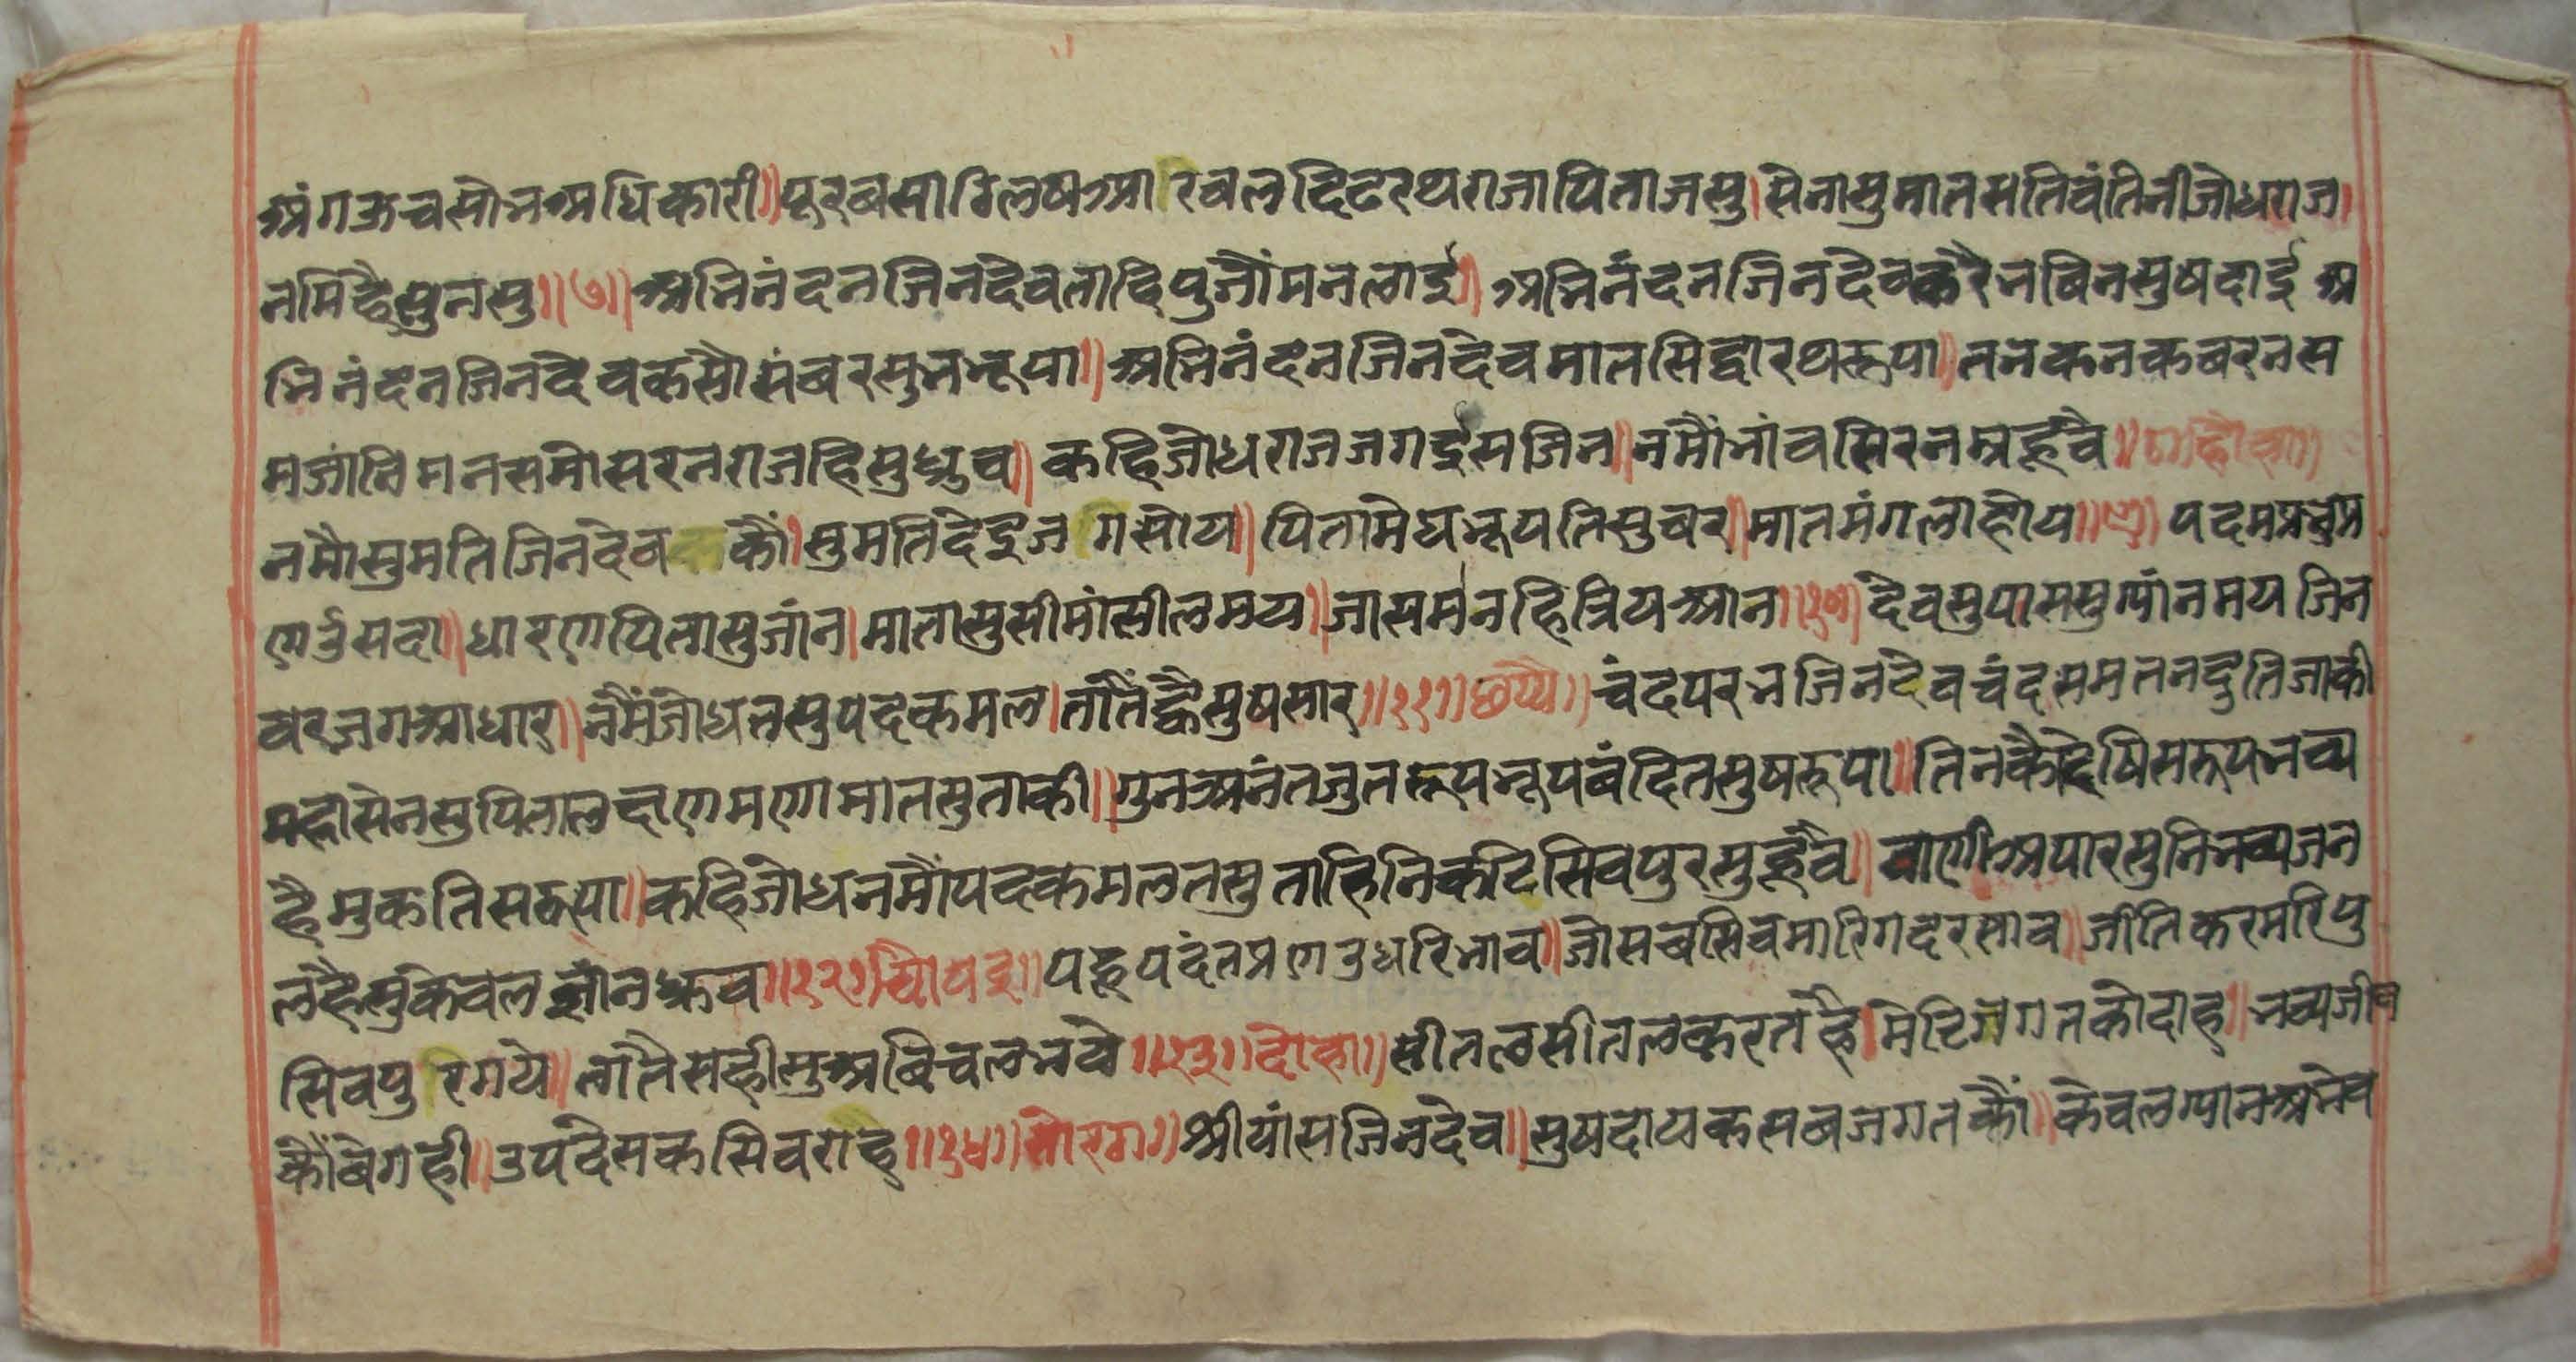 अंगऊचसोभअधिकारी॥पूरबसाठिलषआरिबलदिढरथराजापिताजसु।सेनासुमातसतिवंतिनीजोधराज
नमिहैसुनसु॥७॥अभिनंदनजिनदेवताहिपुजौंमनलाई॥अभिनंदनजिनदेवकरैभबिनसुषदाई अ
भिनंदनजिनदेवकसौसंबरसुतभूपा॥अभिनंदनजिनदेवमातसिद्धारथरूपा॥तनकनकबरनस
मजांनिमनसमोसरनराजहिसुध्रुव॥कहिजोधराजजगईसजिन॥नमौंभांवसिरनम्रह्रूवै॥८॥दोहा॥
नमौसुमतिजिनदेवकौं।सुमतिदेइजगिसोय॥पितामेघभूपतिसुबर॥मातमंगलाहोय॥९॥पदमप्रभुप्र
णउंसदा॥धारणपितासुजांन।मातासुसीमांसीलमय॥जासमनहित्रियआन॥१०॥देवसुपाससुग्यांनमयजिन
बरजगआधार॥नमैंजोधतसुपदकमल।तांतैंह्वैसुषसार॥११॥छप्पै॥चंदपरभजिनदेवचंदसमतनदुतिजाकी
महासेनसुपितालछणमणामातसुताकी॥गुनअनंतजुतरूपभूपबंदितसुषरूपा॥तिनकौदेषिसरूपभव्य
ह्वैमुकतिसरूपा॥कहिजोधनमौंपदकमलतसुताहिनिकटिसिवपुरसुह्रूवै॥वाणीअपारसुनिभव्यजन
लहैसुकेवलज्ञांनध्रुव॥१२॥चौपइ॥पहुपदंतप्रणउधरिभाव॥जोसबसिवमारिगदरसाव॥जीतिकरमरिपु
सिवपुरिगये॥तातैसहीसुअबिचलभये॥१३॥दोहा॥सीतलसीतलकरतहै।मेटिजगतकोदाह॥भव्यजीव
कौंबेगही॥उपदेसकसिवराह॥१४॥सोरठा॥श्रीयांसजिनदेव॥सुषदायकसबजगतकौं॥केवलग्यानअभेव